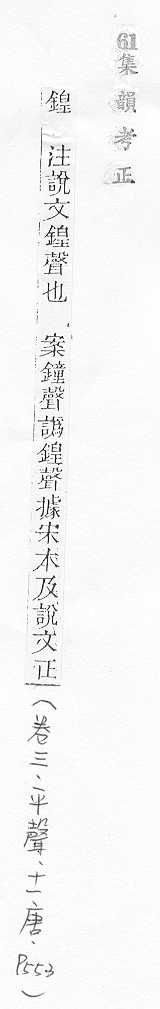 61集韻考正
鍠　注說文鍠聲也　案鐘聲譌鍠聲據宋本及說文正（卷三、平聲、十一唐、P553）